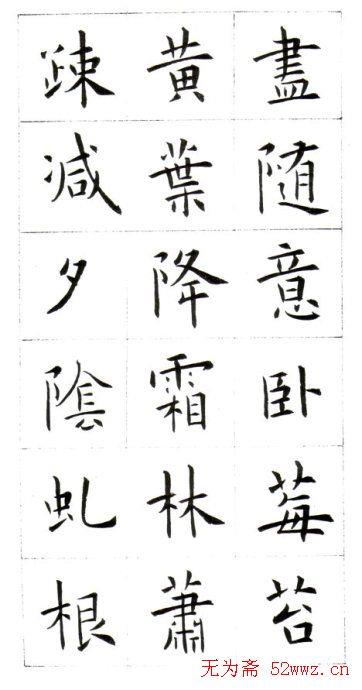 盡随意卧莓苔
黄葉降霜林蕭
疎減夕陰虬根
无为斋 52wwz.cn